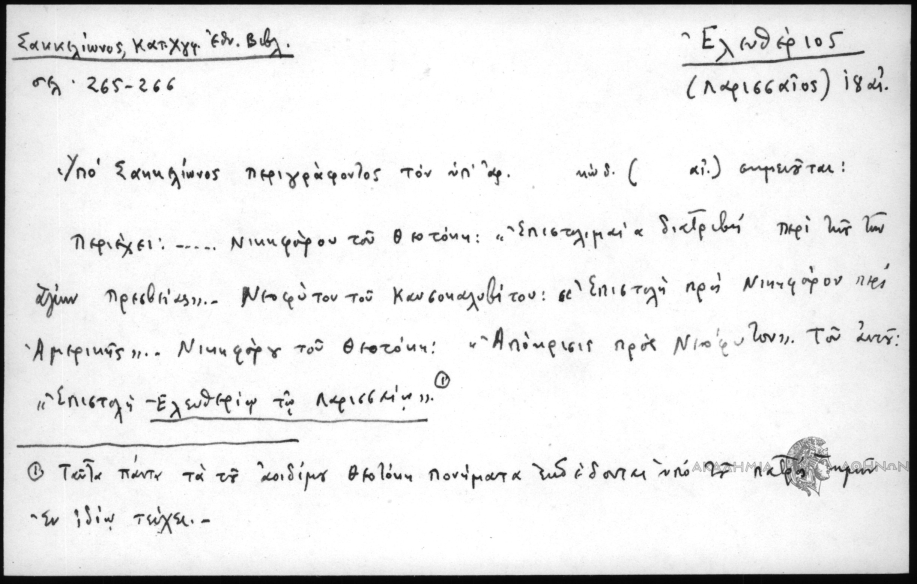 Σακκελίωνος, Κατ. Χγφ. Ἐθν. Βιβλ.
σελ. 265-266
Ἐλευθέριος
(Λαρισσαῖος) ιη΄ αἰ.
Ὑπό Σακκελίωνος περιγράφοντος τόν ὑπ' ἀρ. κώδ. ( αἰ.) σημειοῦται:
Περιέχει: ..... Νικηφόρου τοῦ Θεοτόκη: "Ἐπιστολιμαία διατριβή περί τῆς τῶν
ἁγίων πρεσβείας".- Νεοφύτου τοῦ Καυσοκαλυβίτου: "Ἐπιστολή πρός Νικηφόρον περί
Ἀμερικῆς".- Νικηφόρου τοῦ Θεοτόκη: "Ἀπόκρισις πρός Νεόφυτον". Τοῦ αὐτοῦ:
"Ἐπιστολή Ἐλευθερίῳ τῷ Λαρισσαίῳ". (1)
(1) Ταῦτα πάντα τά τοῦ ἀοιδίμου Θεοτόκη πονήματα ἐκδέδονται ὑπό τοῦ ἡμῶν
ἐν ἰδίῳ τεύχει.-
ΑΚΑΔΗΜΙΑ ΑΘΗΝΩΝ